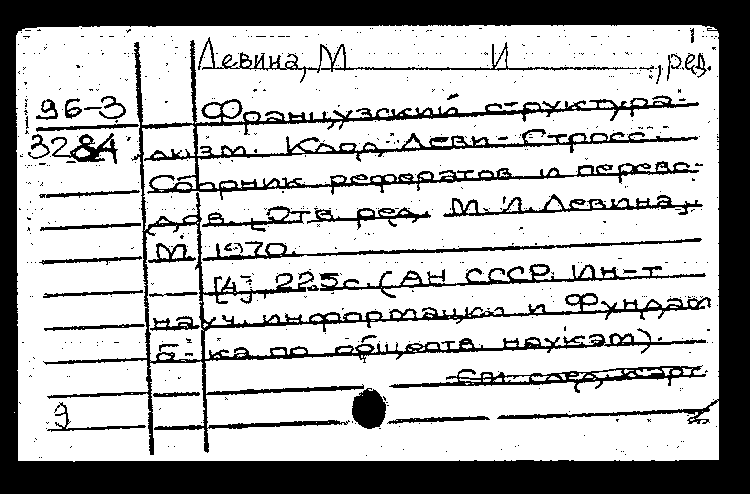 Левина, М И , ред.
96-3 Французский структура-
3284 лизм. Клод Леви-Стросс.
Сборник рефератов и перево-
дов. [Отв ред. М.И.Левина,,
М 1970.
[4], 225с. (АН СССР. Ин-т
науч. информации и Фундам
б-ка по обществ. наукам).
См. след. карт
9